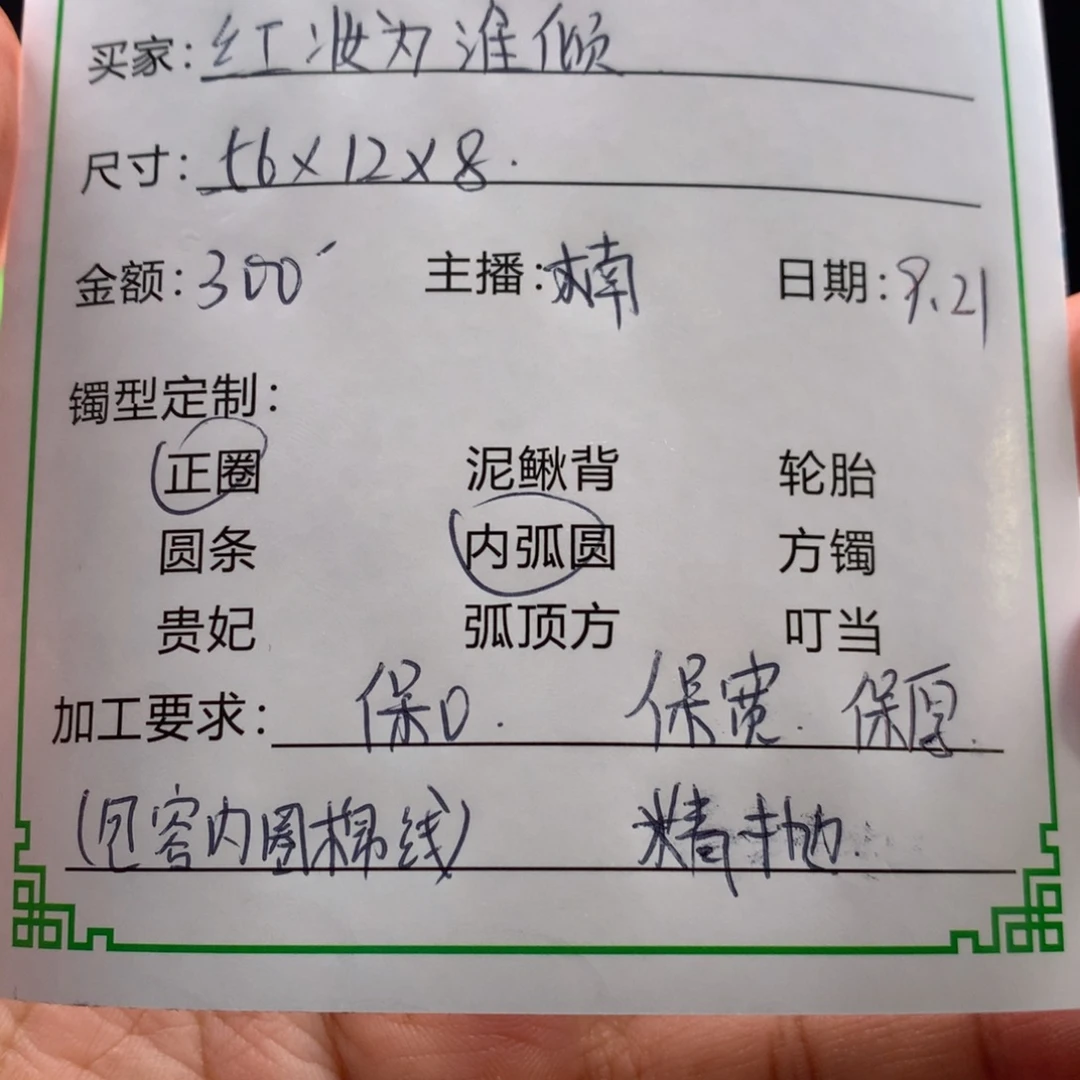 买家：红妆为谁倾
尺寸：56×12×8.
金额：300 主播：楠 日期：9.21
镯型定制：
正圈 泥鳅背 轮胎
圆条 内弧圆 方镯
贵妃 弧顶方 叮当
加工要求：保口. 保宽. 保厚.
(包容内圈棉线) 精抛.